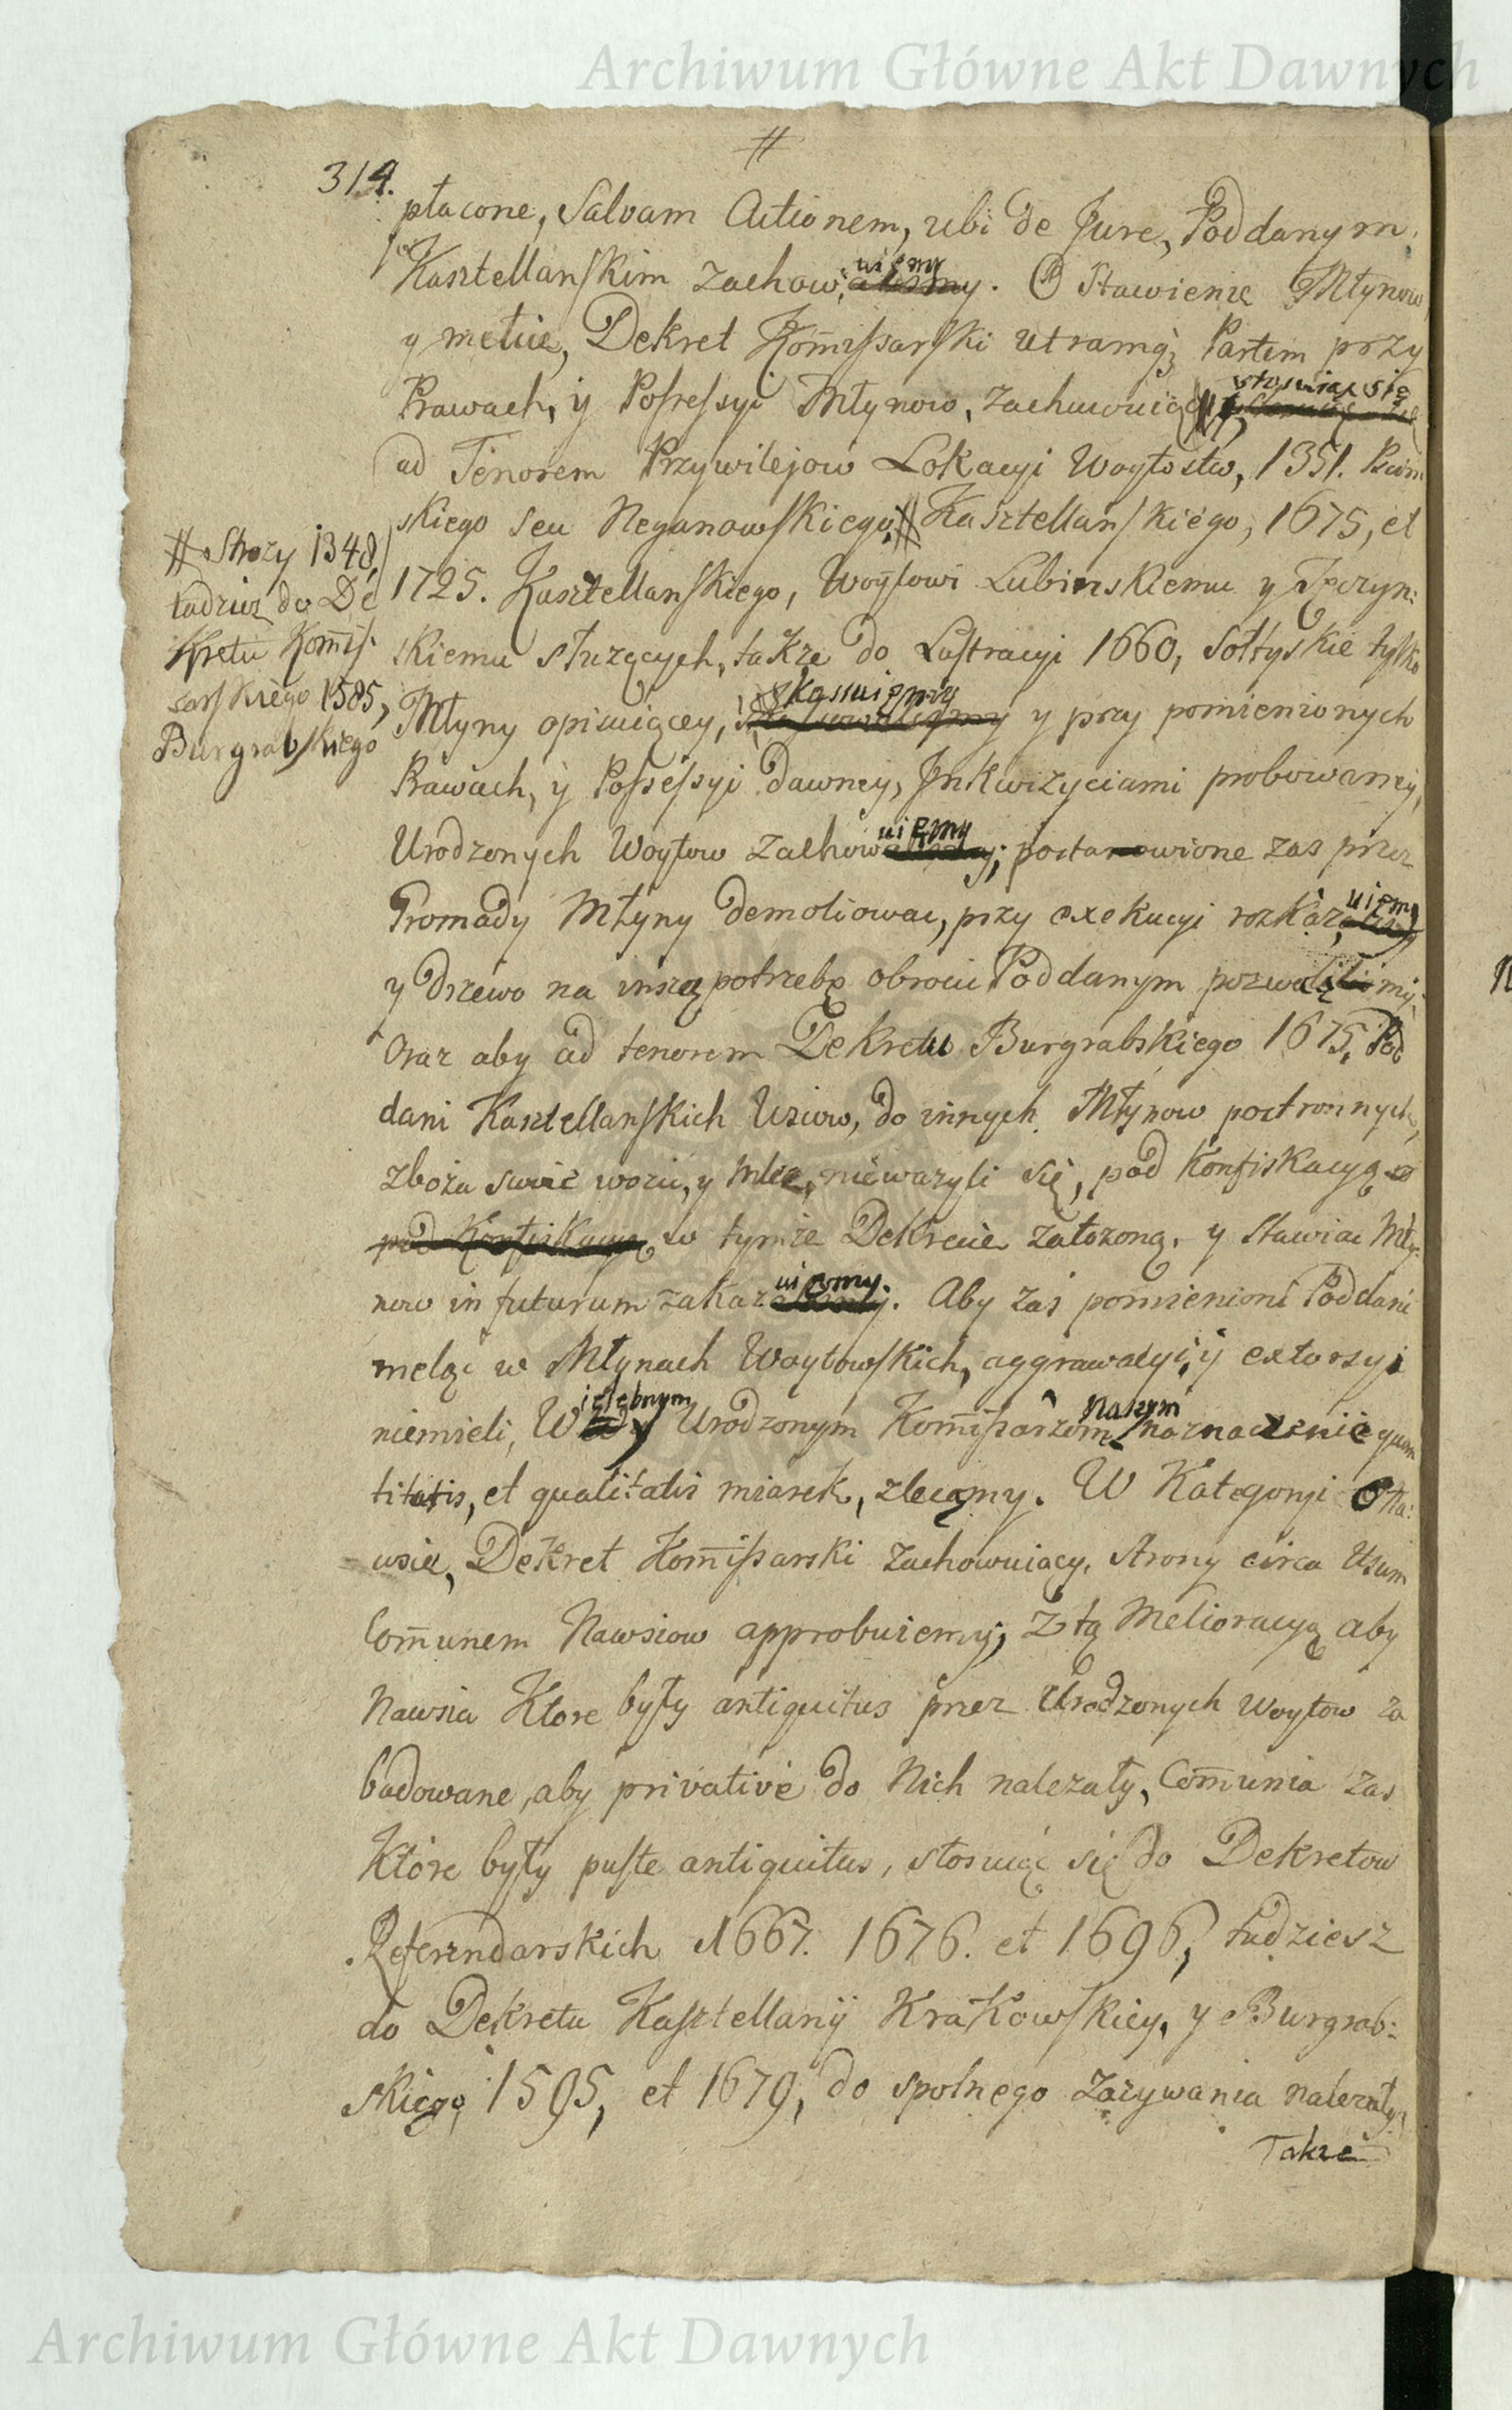 Archiwum Główne Akt Dawnych
#
314.
płacone, Salvam Actionem, ubi de Jure, Poddanym
Kasztellanſkim zachowuiemy. O Stawienie Młynow,
y mełcie, Dekret Kom̄iſsarſki utramq; Partem przy
Prawach, y Poſseſsyi Młynow, zachowuiąc, stosuiąc się
ad Tenorem Przywilejow Lokacyi Woytostw, 1351.
skiego seu Neganowſkiego, # Kasztellanſkiego, 1675, et
# Strozy 1348,
tudziez do De
kretu Kom̄iſ
sarſkiego 1585,
Burgrabſkiego
1725. Kasztellanſkiego, Woytowi Lubinskiemu y
skiemu słuzących, takze do Luſtracyi 1660, Sołtyskie tylko
Młyny opiewiącey, skassuiemy y przy pomienionych
Prawach, y Poſseſsyi dawney, Jnkwizyciami probowaney,
Urodzonych Woytow zachowuiemy; postanowione zas przez
Gromady Młyny demoliowac, przy exekucyi rozkazuiemy
y drzewo na inszą potrzebę obrocic Poddanym pozwalamy,
Oraz aby ad tenorem Dekretu Burgrabskiego 1675, Pod
dani Kasztellanſkich Wsiow, do innych Młynow postronnych,
zboża swoie wozic, y mlec, niewazyli się, pod konfiskacyą
pod Konfiskacyą w tymze Dekrecie załozoną, y stawiac Mły:
now in futurum zakazuiemy. Aby zaś pomienioni Poddani
meląc w Młynach Woytowſkich, aggrawacyi, y extorsyi
niemieli, Wielebnym Urodzonym Kom̄iſsarzom Naszym naznaczenie quan
titatis, et qualitatis miarek, zlecamy. W Kategoryi O Na:
wsie, Dekret Kom̄iſsarski zachowuiący, Strony circa Usum
Com̄unem Nawsiow approbuiemy; Z tą Melioracyą aby
Nawsia Ktore były antiquitus przez Urodzonych Woytow za
budowane, aby privativè do Nich nalezały, Com̄unia zas
Ktore były puſte antiquitus, stosuiąc się do Dekretow
Referendarskich 1667. 1676. et 1696, tudziesz
do Dekretu Kaſztellanij Krakowſkiey, y Burgrab:
skiego 1595, et 1679, do spolnego zazywania nalezały,
Takze
Archiwum Główne Akt Dawnych